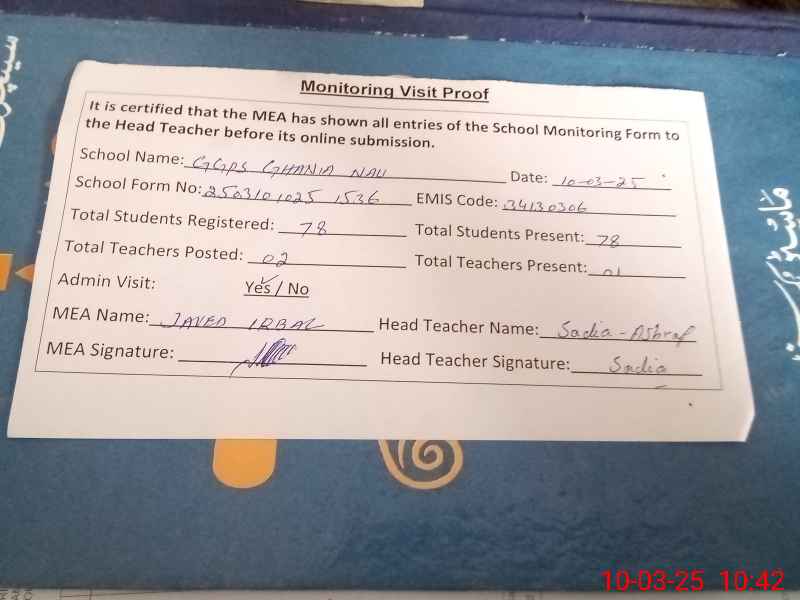 Monitoring Visit Proof
It is certified that the MEA has shown all entries of the School Monitoring Form to
the Head Teacher before its online submission.
School Name: GGPS GHANIA NAU Date: 10-03-25
School Form No: 2503101025 1536 EMIS Code: 34130306
Total Students Registered: 78 Total Students Present: 78
Total Teachers Posted: 02 Total Teachers Present: 01
Admin Visit: Yes / No
MEA Name: JAVED IQBAL Head Teacher Name: Sadia - Ashraf
MEA Signature: Head Teacher Signature: Sadia
10-03-25 10:42